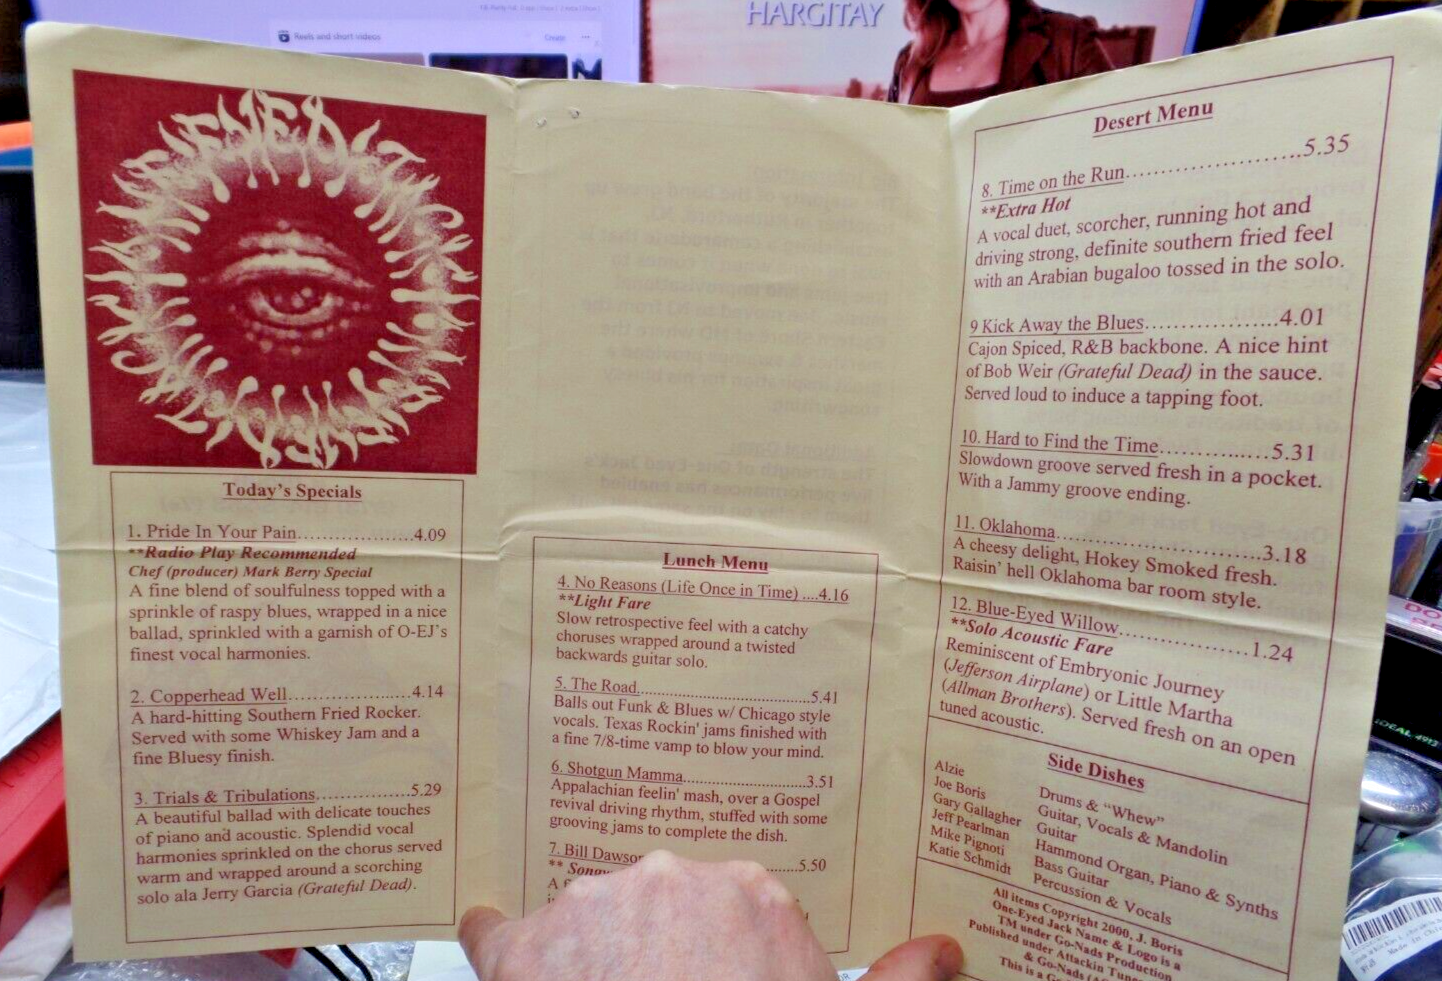 HARGITAY
Reels and short videos
Create
Today's Specials
1. Pride In Your Pain....................4.09
**Radio Play Recommended
Chef (producer) Mark Berry Special
A fine blend of soulfulness topped with a
sprinkle of raspy blues, wrapped in a nice
ballad, sprinkled with a garnish of O-EJ's
finest vocal harmonies.
2. Copperhead Well......................4.14
A hard-hitting Southern Fried Rocker.
Served with some Whiskey Jam and a
fine Bluesy finish.
3. Trials & Tribulations.................5.29
A beautiful ballad with delicate touches
of piano and acoustic. Splendid vocal
harmonies sprinkled on the chorus served
warm and wrapped around a scorching
solo ala Jerry Garcia (Grateful Dead).
Lunch Menu
4. No Reasons (Life Once in Time) ....4.16
**Light Fare
Slow retrospective feel with a catchy
choruses wrapped around a twisted
backwards guitar solo.
5. The Road..............................5.41
Balls out Funk & Blues w/ Chicago style
vocals. Texas Rockin' jams finished with
a fine 7/8-time vamp to blow your mind.
6. Shotgun Mamma.....................3.51
Appalachian feelin' mash, over a Gospel
revival driving rhythm, stuffed with some
grooving jams to complete the dish.
7. Bill Dawson ..........5.50
**
A
Desert Menu
8. Time on the Run........................5.35
**Extra Hot
A vocal duet, scorcher, running hot and
driving strong, definite southern fried feel
with an Arabian bugaloo tossed in the solo.
9 Kick Away the Blues...................4.01
Cajon Spiced, R&B backbone. A nice hint
of Bob Weir (Grateful Dead) in the sauce.
Served loud to induce a tapping foot.
10. Hard to Find the Time...............5.31
Slowdown groove served fresh in a pocket.
With a Jammy groove ending.
11. Oklahoma.............................3.18
A cheesy delight, Hokey Smoked fresh.
Raisin' hell Oklahoma bar room style.
12. Blue-Eyed Willow....................1.24
**Solo Acoustic Fare
Reminiscent of Embryonic Journey
(Jefferson Airplane) or Little Martha
(Allman Brothers). Served fresh on an open
tuned acoustic.
Side Dishes
Alzie Drums & "Whew"
Joe Boris Guitar, Vocals & Mandolin
Gary Gallagher Guitar
Jeff Pearlman Hammond Organ, Piano & Synths
Mike Pignoti Bass Guitar
Katie Schmidt Percussion & Vocals
All items Copyright 2000, J. Boris
One-Eyed Jack Name & Logo is a
TM under Go-Nads Production
Published under Attackin Tunes
& Go-Nads
This is a